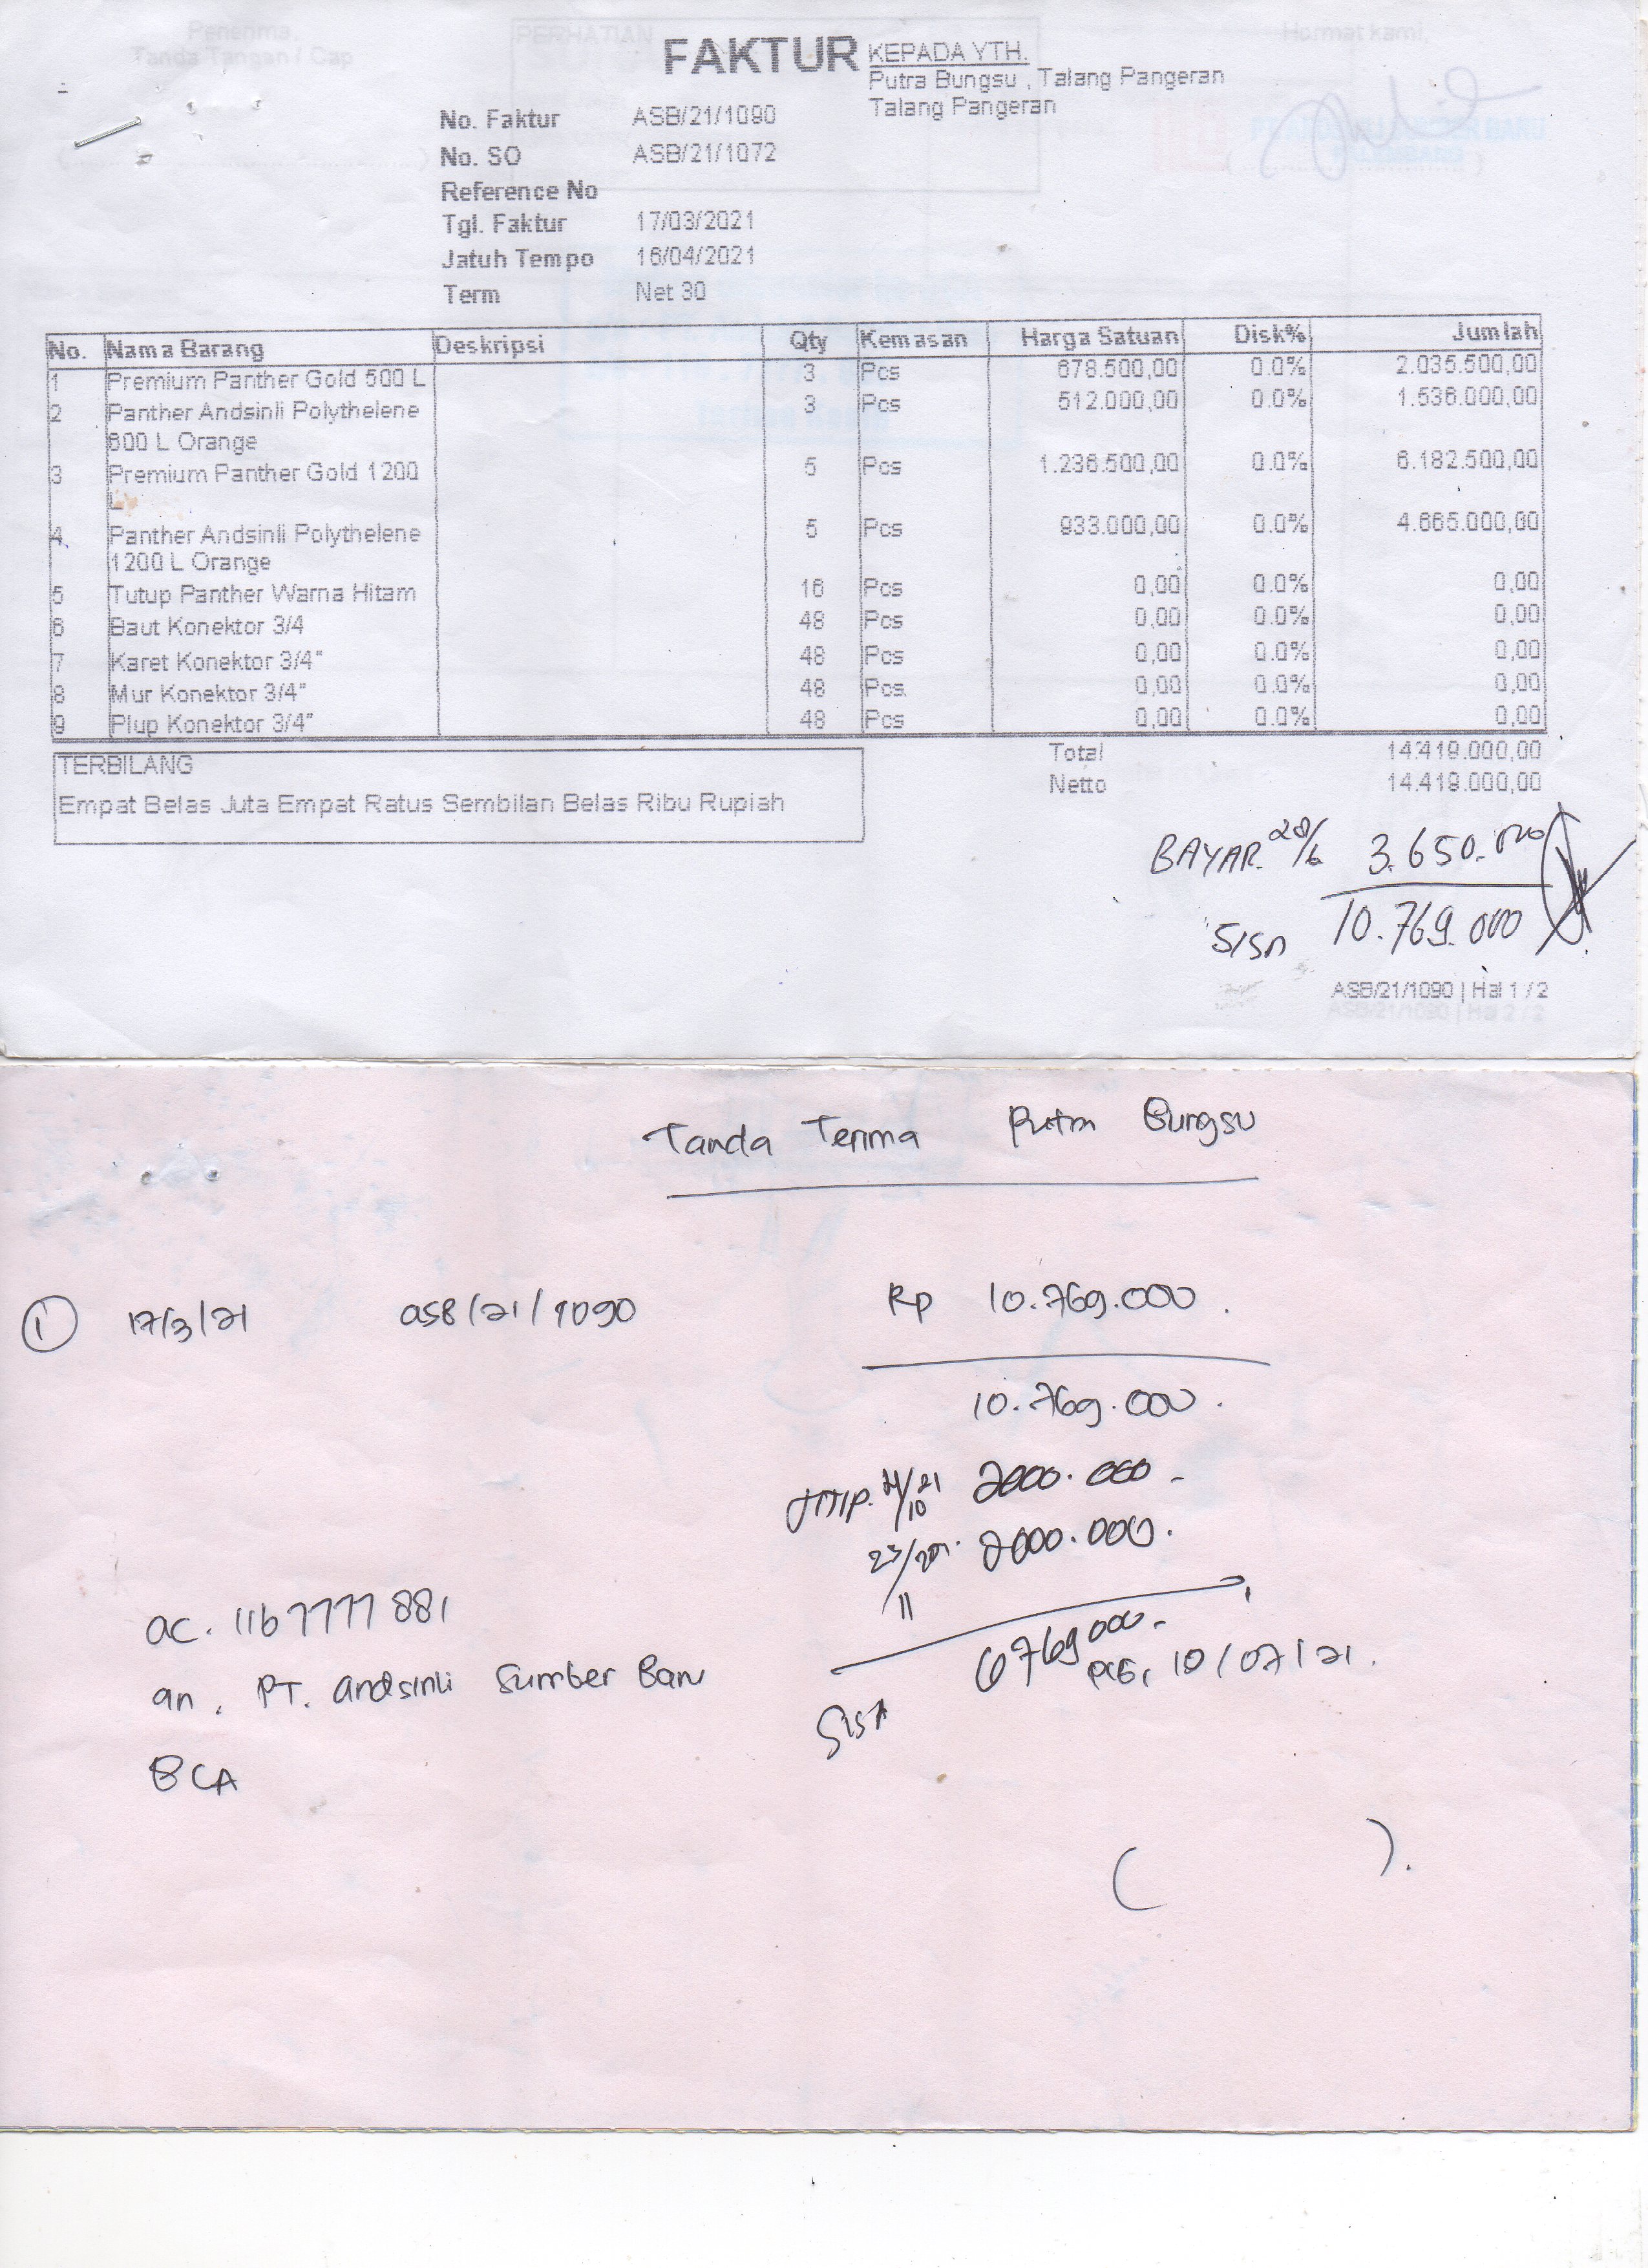 Penerima,
Tanda Tangan / Cap
PERHATIAN
Hormat kami,
FAKTUR
KEPADA YTH.
Putra Bungsu , Talang Pangeran
Talang Pangeran
No. Faktur ASB/21/1090
No. SO ASB/21/1072
Reference No
Tgl. Faktur 17/03/2021
Jatuh Tempo 16/04/2021
Term Net 30
No. Nama Barang Deskripsi Qty Kemasan Harga Satuan Disk% Jumlah
1 Premium Panther Gold 500 L 3 Pcs 678.500,00 0.0% 2.035.500,00
2 Panther Andsinli Polythelene 3 Pcs 512.000,00 0.0% 1.536.000,00
600 L Orange
3 Premium Panther Gold 1200 5 Pcs 1.236.500,00 0.0% 6.182.500,00
L
4 Panther Andsinli Polythelene 5 Pcs 933.000,00 0.0% 4.665.000,00
1200 L Orange
5 Tutup Panther Warna Hitam 16 Pcs 0,00 0.0% 0,00
6 Baut Konektor 3/4 48 Pcs 0,00 0.0% 0,00
7 Karet Konektor 3/4" 48 Pcs 0,00 0.0% 0,00
8 Mur Konektor 3/4" 48 Pcs 0,00 0.0% 0,00
9 Plup Konektor 3/4" 48 Pcs 0,00 0.0% 0,00
Total 14.419.000,00
Netto 14.419.000,00
TERBILANG
Empat Belas Juta Empat Ratus Sembilan Belas Ribu Rupiah
BAYAR. 28/6 3.650.000
SISA 10.769.000
ASB/21/1090 | Hal 1 / 2
ASB/21/1090 | Hal 2 / 2
Tanda Terima Putra Bungsu
1 17/3/21 ASB/21/1090 Rp 10.769.000.
10.769.000.
2000.000 -
2000.000.
6769000.-
SISA
10/07/21.
ac. 1167777881
an. PT. Andsinli Sumber Baru
BCA
( ).